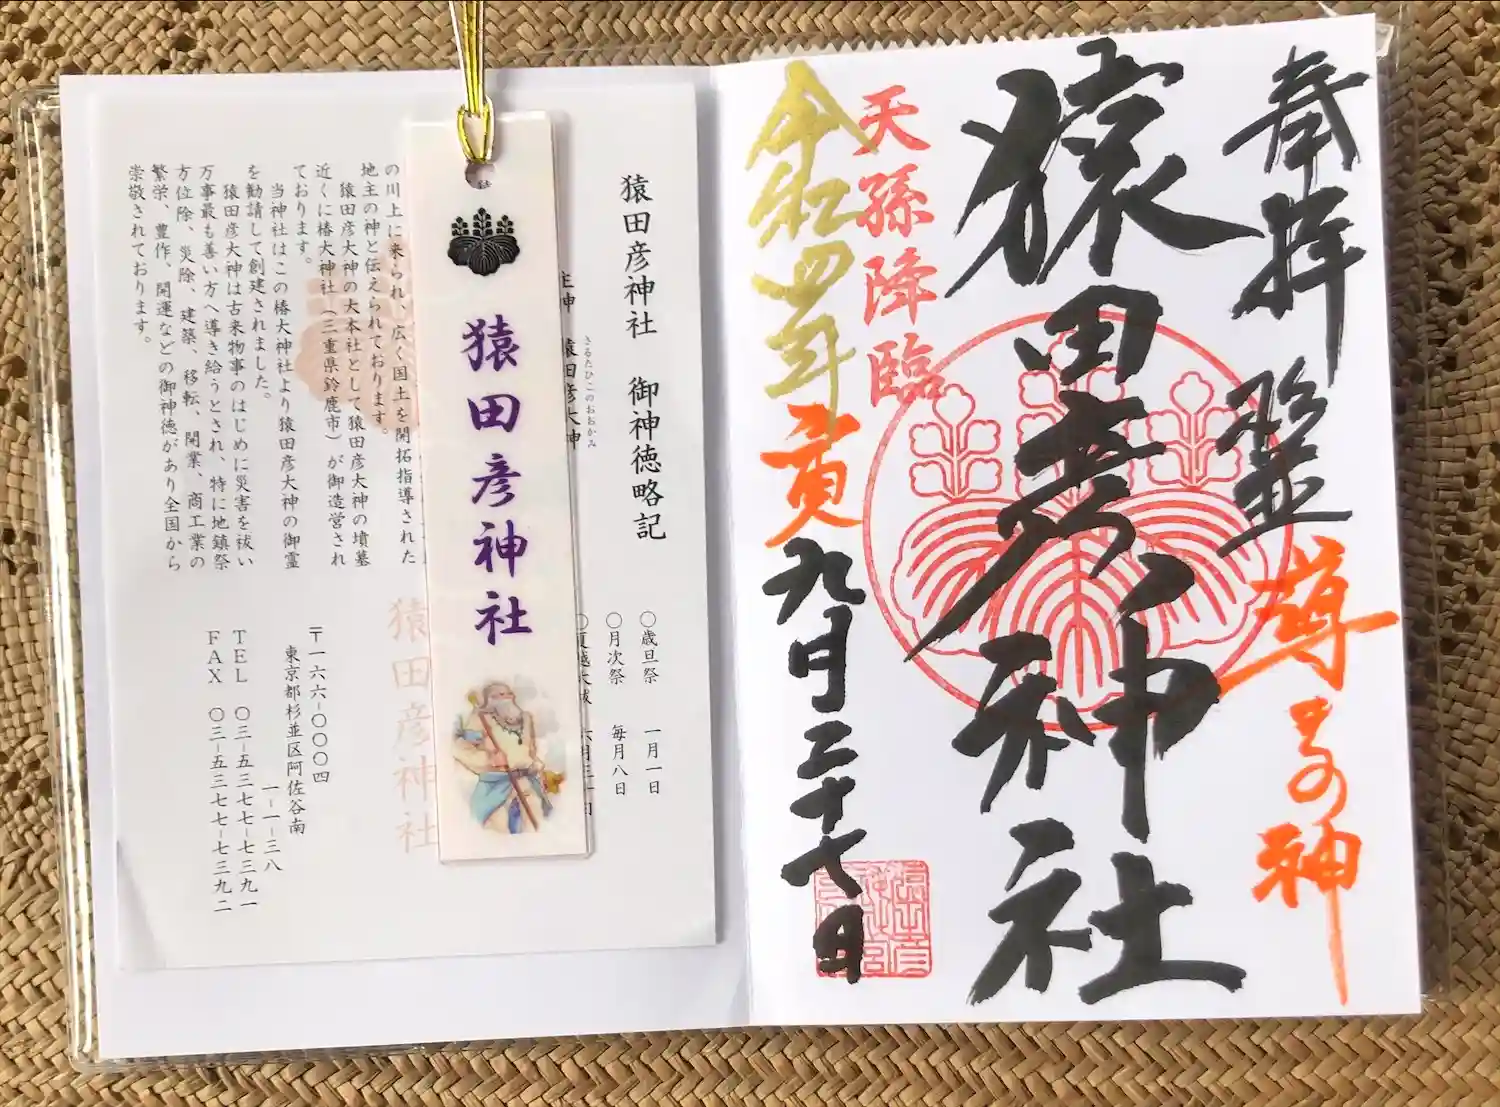 奉拝
導きの神
猿田彦神社
天孫降臨
令和四年寅九月二十七日
猿田彦神社 御神徳略記
さるたひこのおおかみ
主神 猿田彦大神
〇歳旦祭 一月一日
〇月次祭 毎月八日
〇夏越大祓 六月三十日
猿田彦神社
の川上に来られ、広く国土を開拓指導された
地主の神と伝えられております。
猿田彦大神の大本社として猿田彦大神の墳墓
近くに椿大神社（三重県鈴鹿市）が御造営され
ております。
当神社はこの椿大神社より猿田彦大神の御霊
を勧請して創建されました。
猿田彦大神は古来物事のはじめに災害を祓い
万事最も善い方へ導き給うとされ、特に地鎮祭
方位除、災除、建築、移転、開業、商工業の
繁栄、豊作、開運などの御神徳があり全国から
崇敬されております。
猿田彦神社
〒一六六-〇〇〇四
東京都杉並区阿佐谷南
一-一-三八
ＴＥＬ 〇三-五三七七-七三九一
ＦＡＸ 〇三-五三七七-七三九二